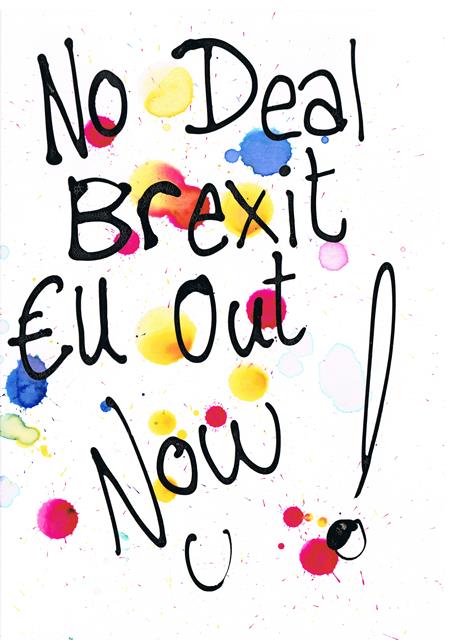 No Deal
Brexit
€U Out
Now!